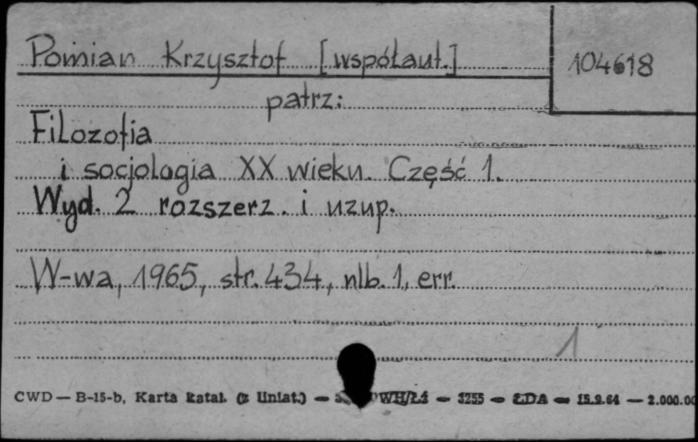 Pomian Krzysztof [współaut.]
104618
patrz:
Filozofia
i socjologia XX wieku. Część 1.
Wyd. 2 rozszerz. i uzup.
W-wa, 1965, str. 434, nlb. 1, err.
1
CWD — B-15-b, Karta katal. (z Uniat.) — WH/Ł4 — 3255 — ŁDA — 15.9.64 — 2.000.00